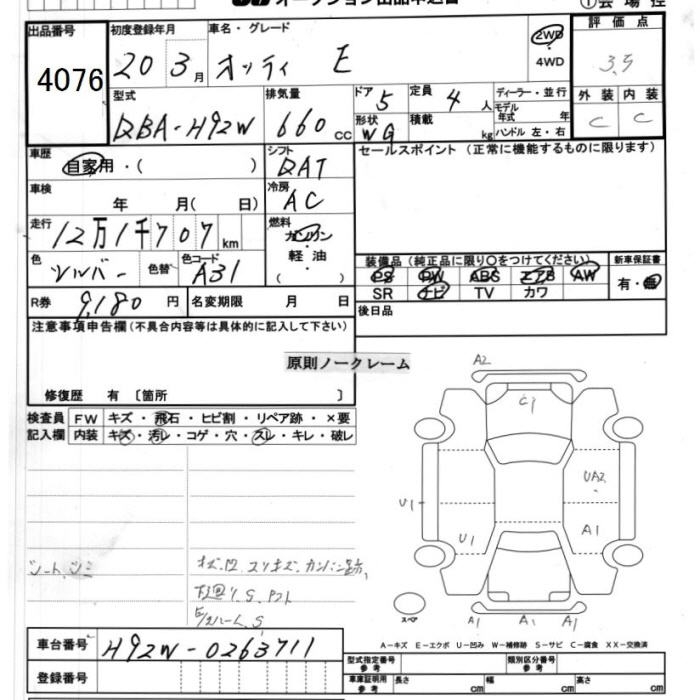 オークション出品申込書
①会場控
出品番号
4076
初度登録年月
20 3月
車名・グレード
オッティ E
2WD
4WD
評価点
3.5
型式
DBA-H92W
排気量
660 cc
ドア 5
定員 4 人
形状 WG
積載 kg
ディーラー・並行
モデル年式 年
ハンドル 左・右
外装 内装
C C
車歴
自家用・( )
シフト
DAT
セールスポイント (正常に機能するものに限ります)
車検
年 月( 日)
冷房
AC
走行
12万1千707km
燃料
ガソリン
・
軽油
( )
色
シルバー
色替
色コード
A31
装備品 (純正品に限り〇をつけてください)
新車保証書
PS PW ABS エアB AW
SR ナビ TV カワ
有・無
R券 9,180 円
名変期限 月 日
後日品
注意事項申告欄 (不具合内容等は具体的に記入して下さい)
原則ノークレーム
修復歴 有 〔箇所 〕
検査員
記入欄
FW キズ・飛石・ヒビ割・リペア跡・×要
内装 キズ・汚レ・コゲ・穴・スレ・キレ・破レ
シート、シミ
A2
C1
UA2
U1
U1
A1
スペア
A1 A1 A1
A-キズ E-エクボ U-凹み W-補修跡 S-サビ C-腐食 XX-交換済
車台番号 H92W-0263711
登録番号
型式指定番号
参考
類別区分番号
参考
車庫証明用
参考
長さ cm 幅 cm 高さ cm